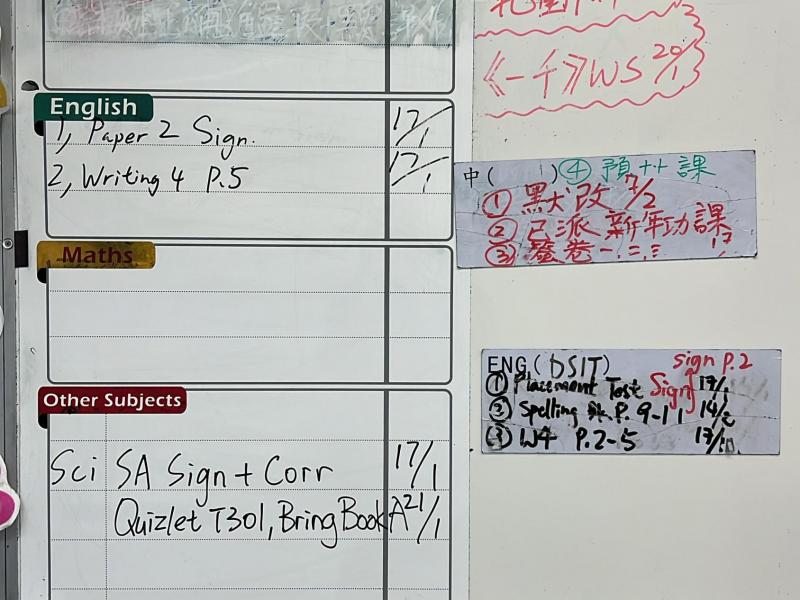 English
1, Paper 2 Sign. 17/1
2, Writing 4 P.5 17/1
Maths
Other Subjects
Sci SA Sign + Corr 17/1
Quizlet T301, Bring Book A 21/1
《一千》WS 20/1
中( ) ④ 預 ++ 課
① 默改 7/2
② 已派新年功課
③ 發卷一.二.三 17
ENG.(DSIT) sign P.2
① Placement Test Sign 17/1
② Spelling P. 9-11 14/2
③ W4 P.2-5